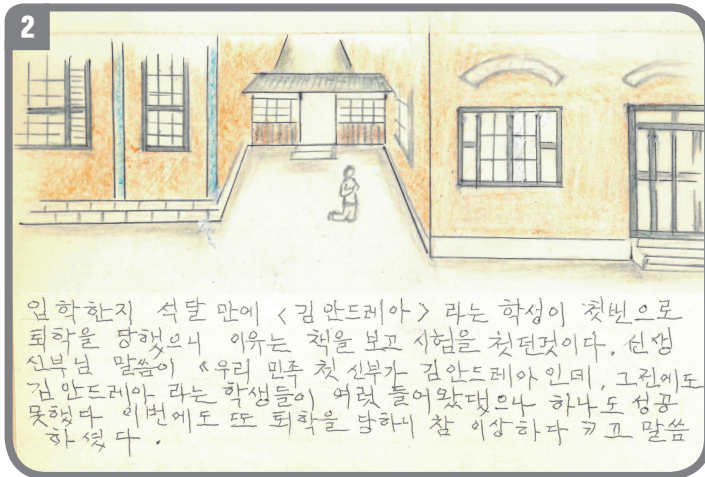 2
입학한지 석달 만에 <김안드레아> 라는 학생이 첫번으로
퇴학을 당했으니 이유는 책을 보고 시험을 첫던것이다.
신부님 말씀이 《우리 민족 첫 신부가 김안드레아 인데, 그전에도
김안드레아 라는 학생들이 여럿 들어왔댔으나 하나도 성공
못했다 이번에도 또 퇴학을 당하니 참 이상하다 고 말씀
하셨다.